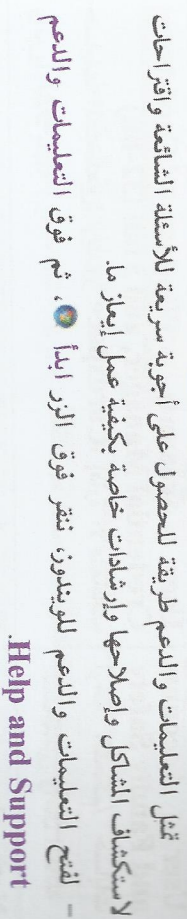 تمثل التعليمات والدعم طريقة للحصول على أجوبة سريعة للأسئلة الشائعة واقتراحات
لاستكشاف المشاكل وإصلاحها وإرشادات خاصة بكيفية عمل إيعاز ما.
- لفتح التعليمات والدعم للويندوز، ننقر فوق الزر ابدأ ، ثم فوق التعليمات والدعم
Help and Support.